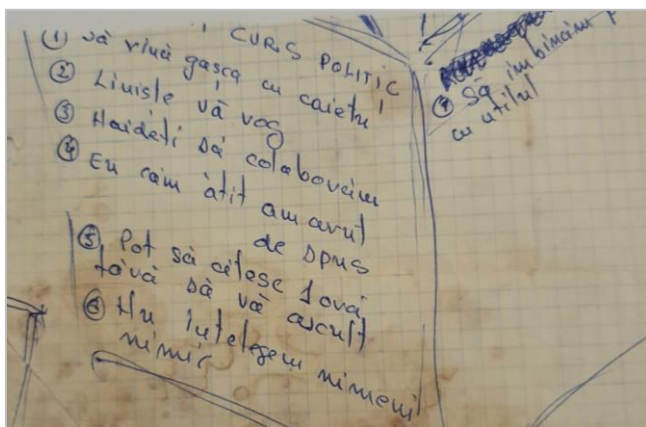 CURS POLITIC
① să vină gașca cu caietu'
② Liniște vă rog
③ Haideți să colaborăm
④ Eu cam atît am avut
de spus
⑤ Pot să citesc 1 oră
fără să vă ascult
⑥ Nu înțelegem nimeni
nimic
⑦ Să îmbinăm
cu utilul